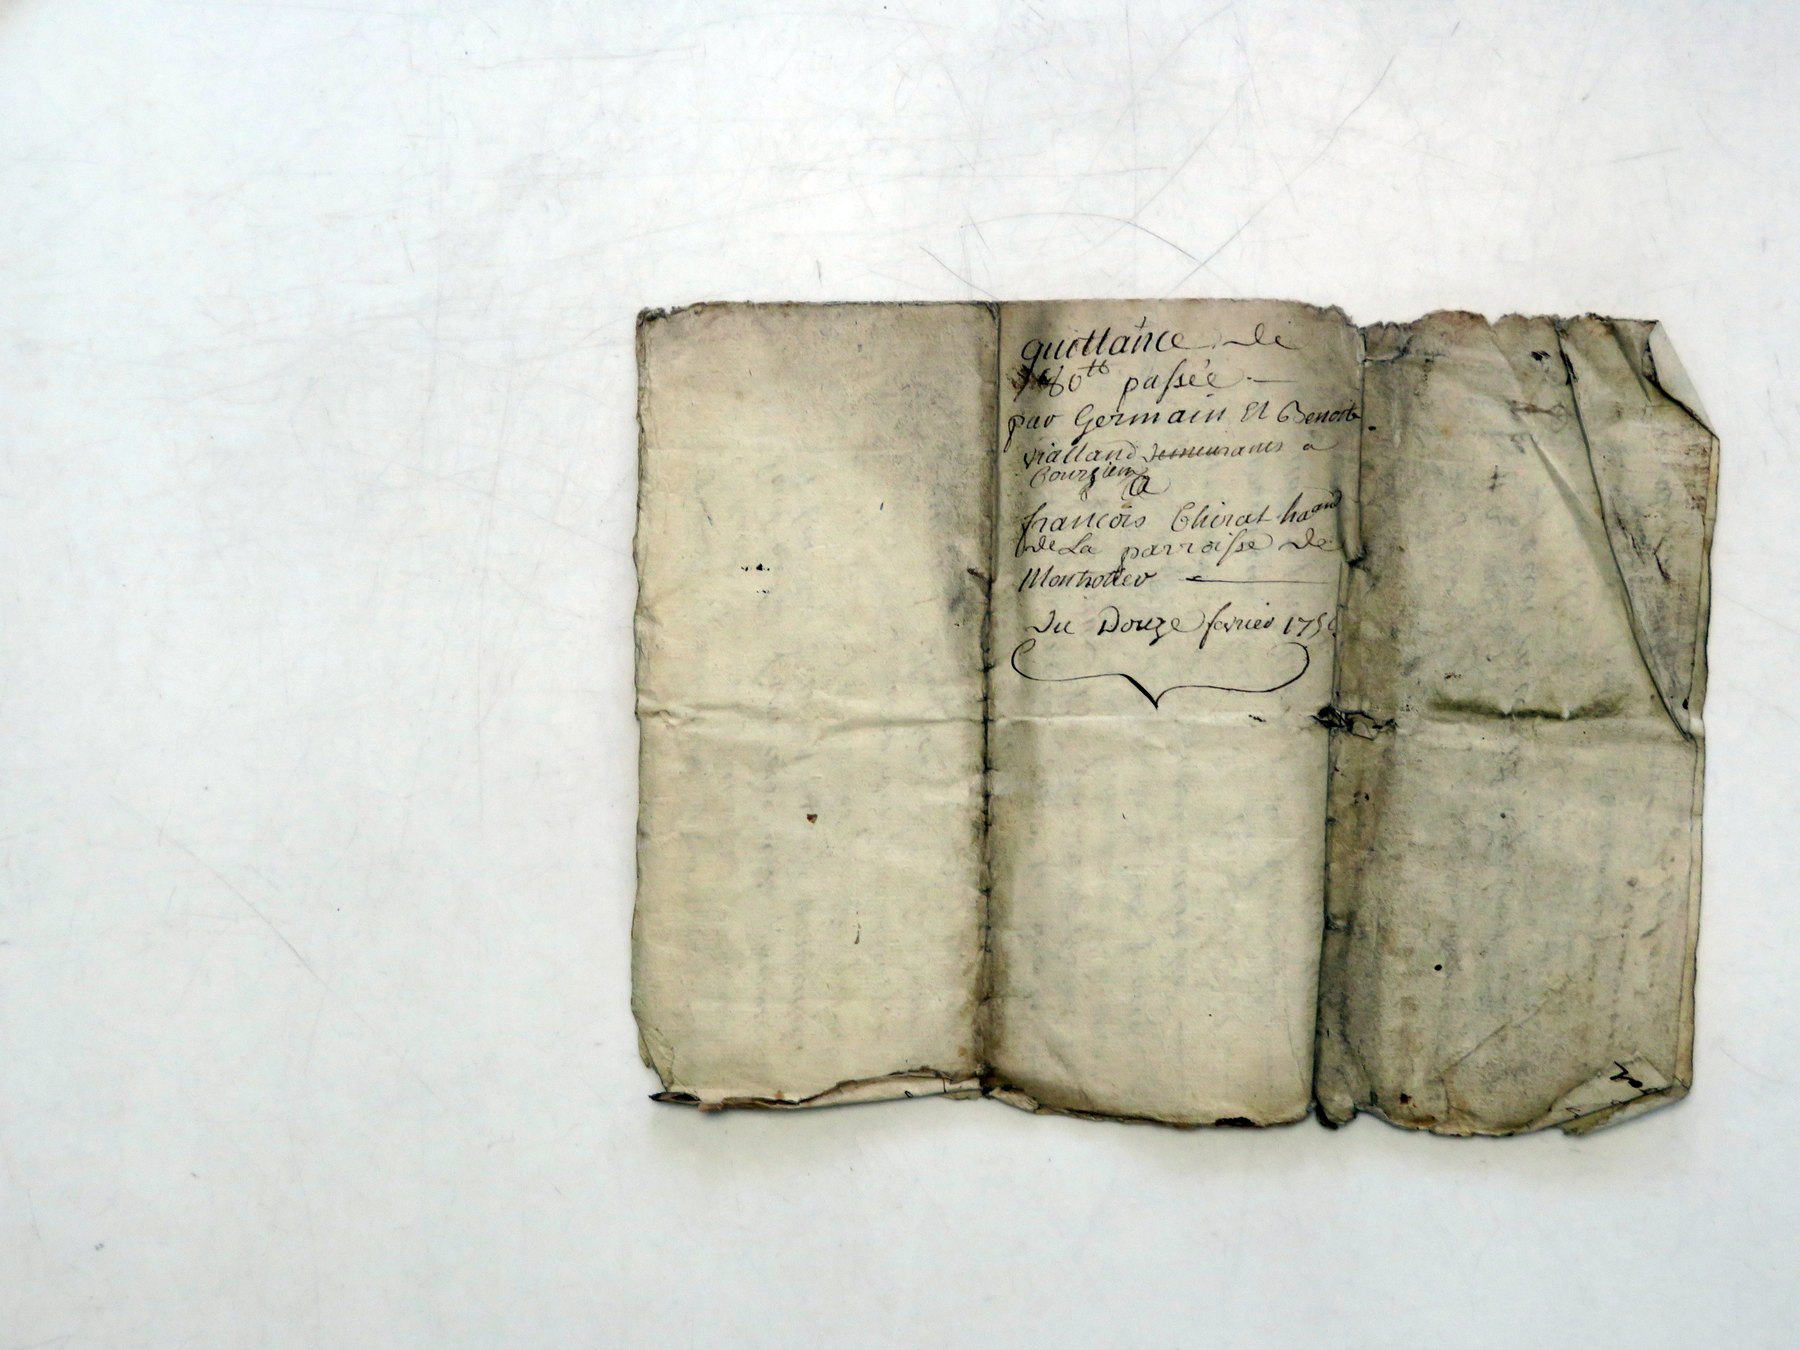 quittance de
80ᵗᵗ passée
par Germain Et Benoit
vialland demeurants a
francois Chirat
de La parroisse de
Montrottier
du Douze fevrier 175